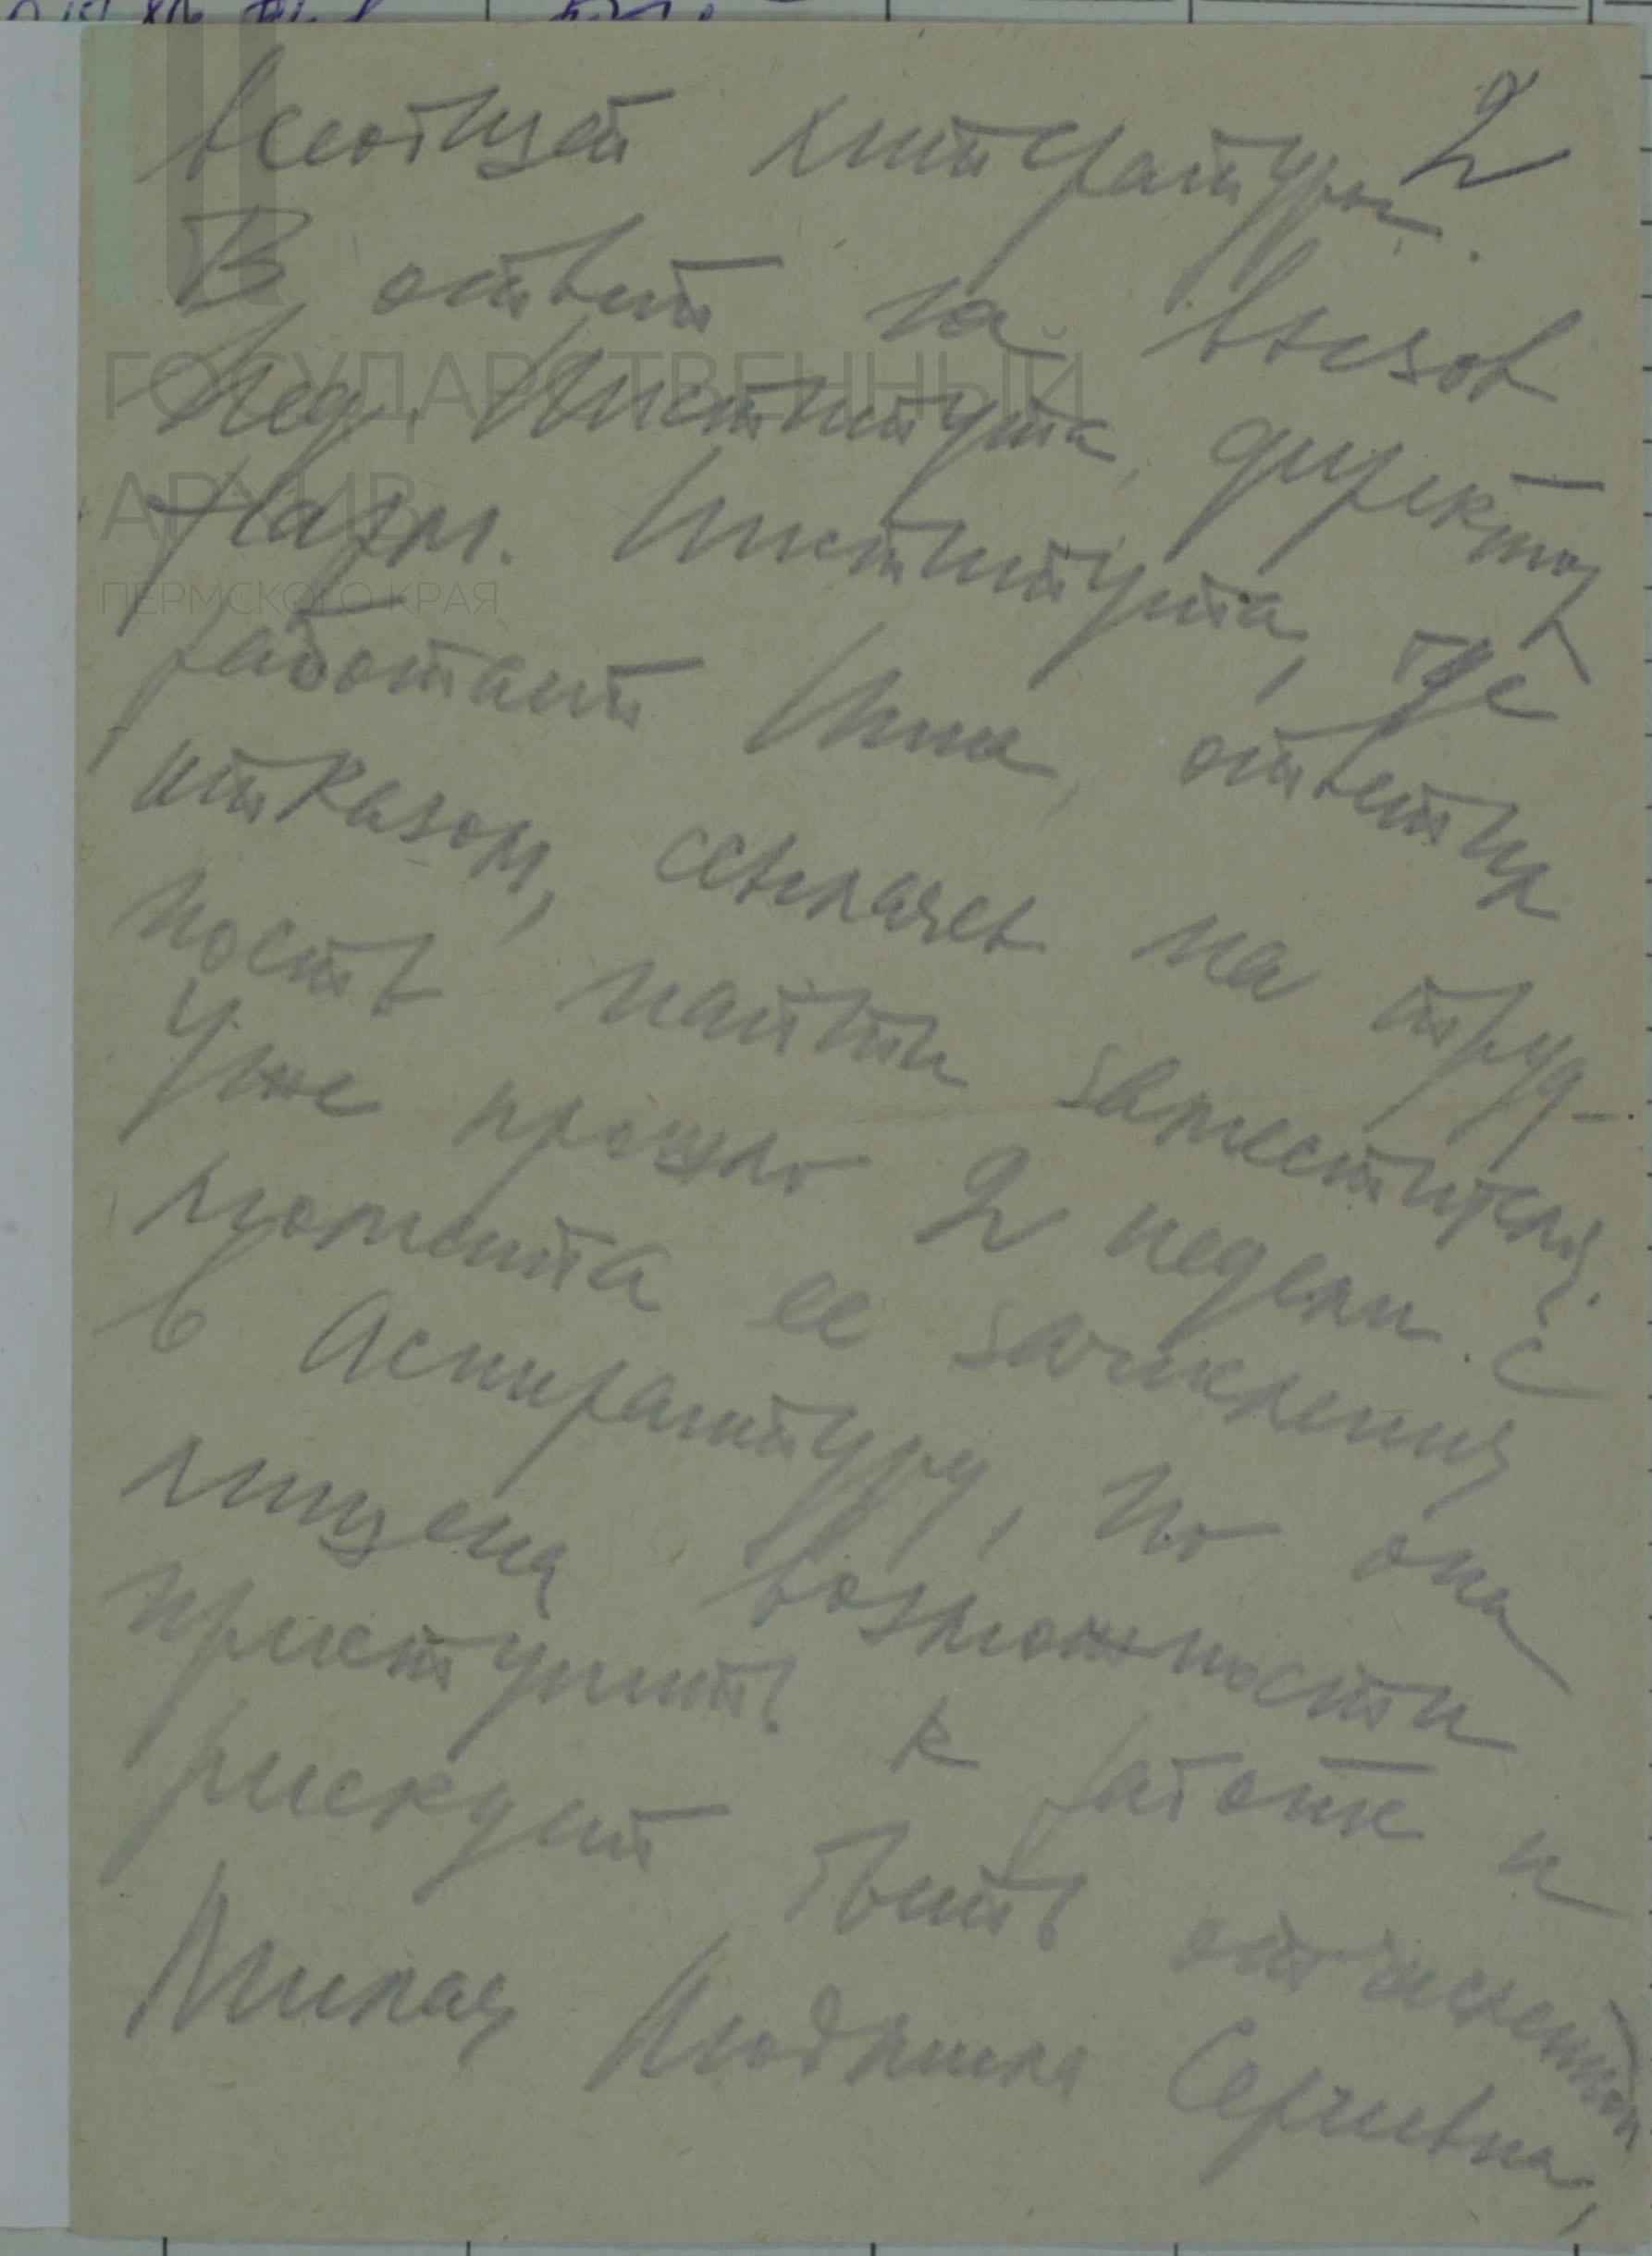 2
всеобщей литературы.
В ответ на вызов
Пед. Института, директор
Фарм. Института, где
работает Инна, ответил
отказом, ссылаясь на труд-
ность найти заместителя.
Уже прошло 2 недели с
момента ее зачисления
в Аспирантуру, но она
лишена возможности
приступить к работе и
рискует быть отчисленной
Милая Людмила Сергеевна,
ГОСУДАРСТВЕННЫЙ
АРХИВ
ПЕРМСКОГО КРАЯ